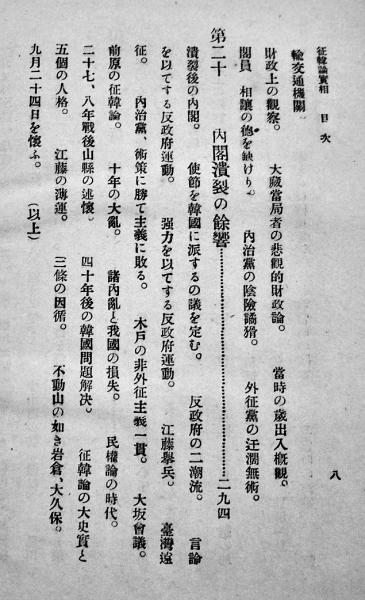 征韓論實相　目次
八
輪交通機關。
財政上の觀察。　大藏當局者の悲觀的財政論。　當時の歲出入槪觀。
閣員　相讓の德を缺けり。　內治黨の陰險譎猾。　外征黨の迂濶無術。
第二十　內閣潰裂の餘響……………………二九四
潰裂後の內閣。　使節を韓國に派するの議を定む。　反政府の二潮流。　言論
を以てする反政府運動。　强力を以てする反政府運動。　江藤擧兵。　臺灣遠
征。　內治黨、術策に勝て主義に敗る。　木戶の非外征主義一貫。　大坂會議。
前原の征韓論。　十年の大亂。　諸內亂と我國の損失。　民權論の時代。
二十七、八年戰後山縣の述懷。　四十年後の韓國問題解決。　征韓論の大史實と
五個の人格。　江藤の薄運。　三條の因循。　不動山の如き岩倉、大久保。
九月二十四日を懷ふ。　（以上）